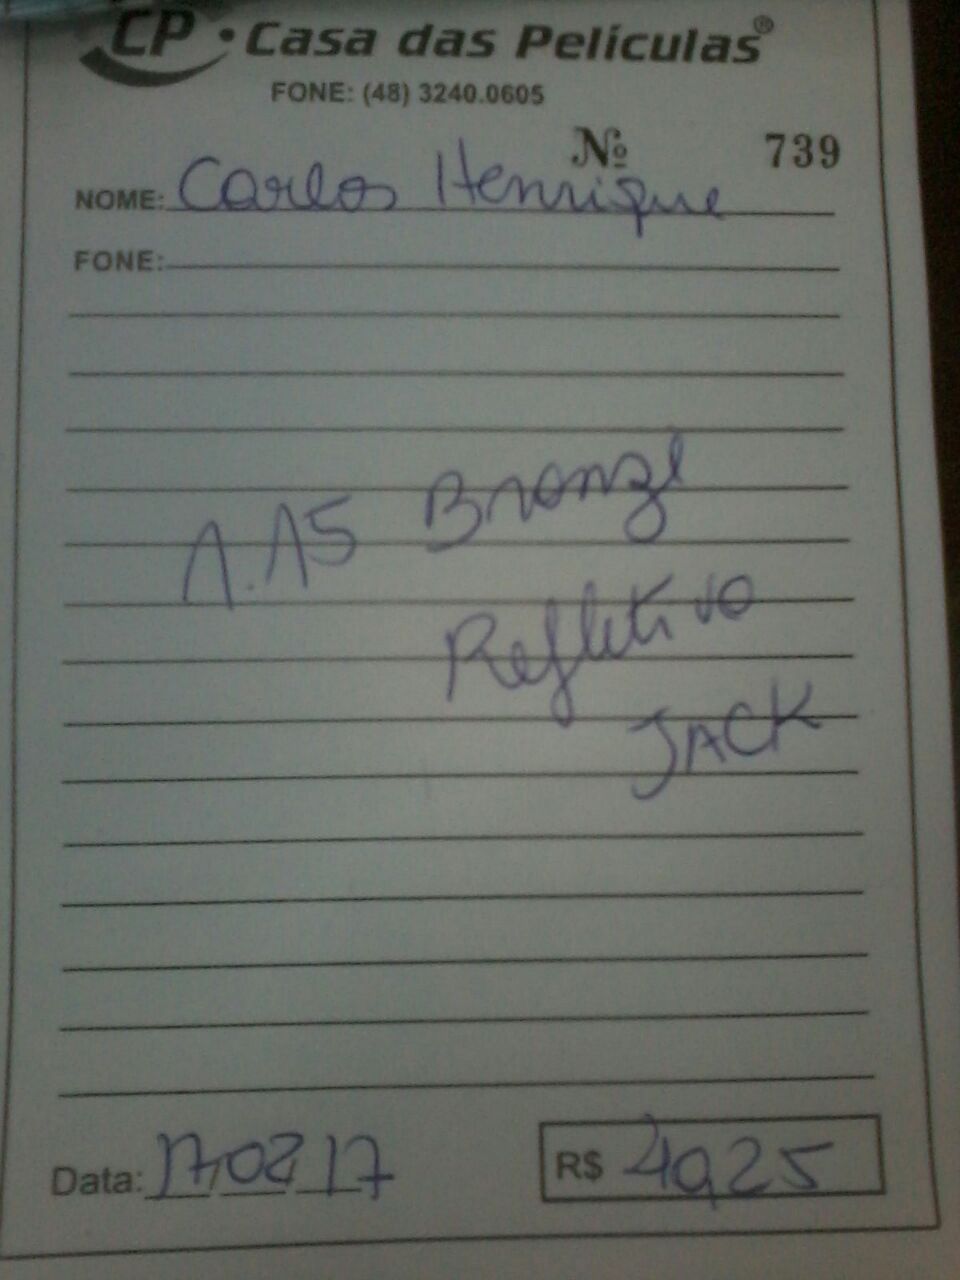 CP • Casa das Películas®
FONE: (48) 3240.0605
Nº 739
NOME: Carlos Henrique
FONE:
1.15 Bronze
Refletivo
JACK
Data: 17/02/17
R$ 40,25